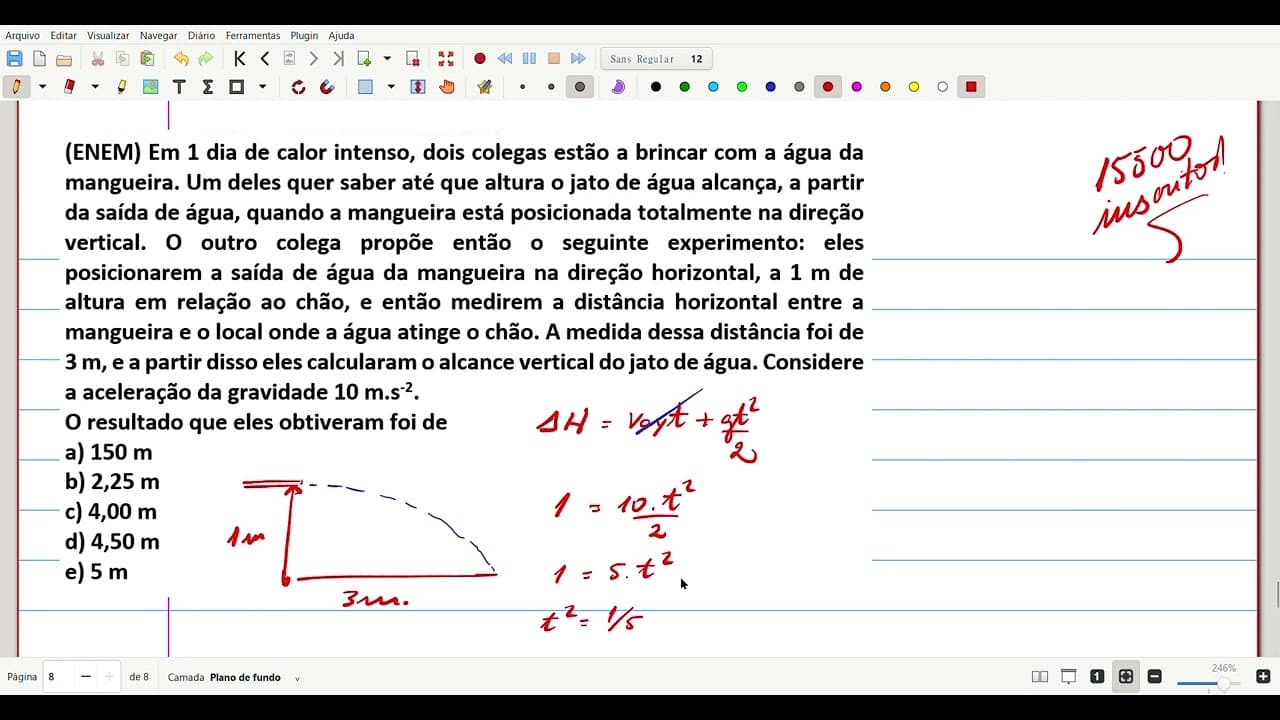 Arquivo Editar Visualizar Navegar Diário Ferramentas Plugin Ajuda
Sans Regular 12
(ENEM) Em 1 dia de calor intenso, dois colegas estão a brincar com a água da
mangueira. Um deles quer saber até que altura o jato de água alcança, a partir
da saída de água, quando a mangueira está posicionada totalmente na direção
vertical. O outro colega propõe então o seguinte experimento: eles
posicionarem a saída de água da mangueira na direção horizontal, a 1 m de
altura em relação ao chão, e então medirem a distância horizontal entre a
mangueira e o local onde a água atinge o chão. A medida dessa distância foi de
3 m, e a partir disso eles calcularam o alcance vertical do jato de água. Considere
a aceleração da gravidade 10 m.s⁻².
O resultado que eles obtiveram foi de
a) 150 m
b) 2,25 m
c) 4,00 m
d) 4,50 m
e) 5 m
1m
3m.
ΔH = Voyt + gt²/2
1 = 10.t²/2
1 = 5.t²
t² = 1/5
15500
inscritos!
Página 8 de 8 Camada Plano de fundo
1
246%